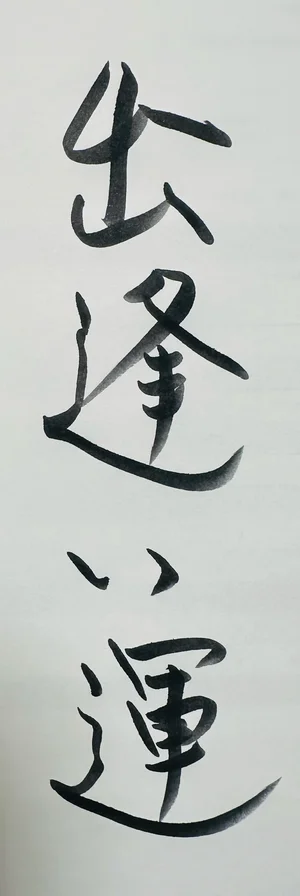 出逢い運